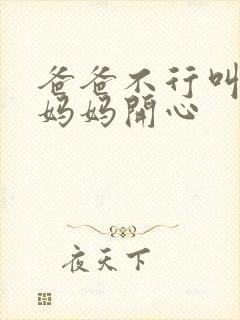 爸爸不行叫
妈妈開心
夜天下